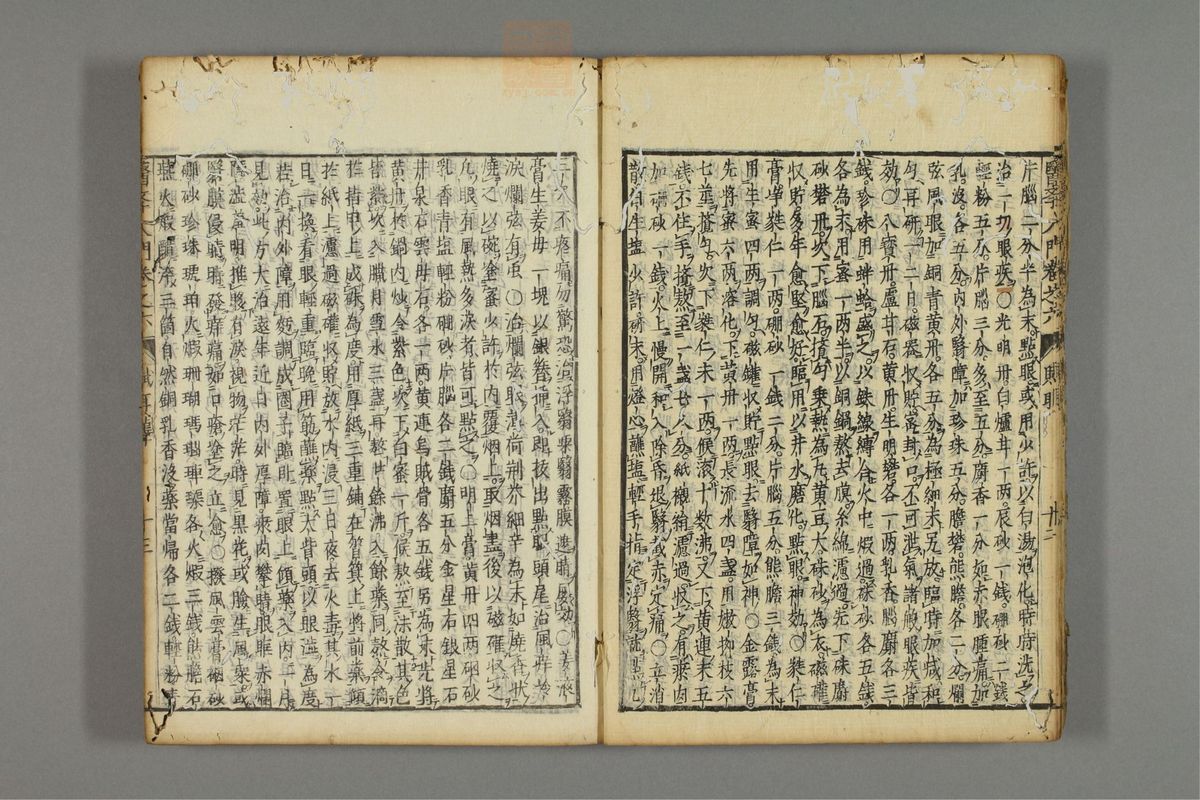 片腦一分半為末點眼或用少許以白湯泡化時時洗之
治一切眼疾〇光明丹白爐甘一兩辰砂一錢硼砂二錢
輕粉五分片腦三分多至五分麝香一分如赤眼腫痛加
乳沒各五分內外翳障加珍珠五分膽礬熊膽各二分爛
弦風眼加銅青黃丹各五分為極細末另放臨時加減和
勻再研一二日磁器收貯密封口不可泄氣諸般眼疾皆
効〇八寶丹爐甘石黃丹生明礬各一兩乳香腦麝各三
錢珍珠用蚌蛤盛之以鐵線縛合火中煆過硃砂各五錢
各為末用蜜一兩半以銅鍋熬去沫絲綿濾過先下硃麝
砂礬丹次下腦石攪勻乘熱為丸黃豆大硃砂為衣磁罐
收貯多年愈堅愈好臨用以井水磨化點眼神効〇蕤仁
膏蕤仁一兩硼砂一錢二分片腦五分熊膽三錢為末
用生蜜四兩調勻磁罐收貯點眼去翳障如神〇金露膏
先將蜜六兩溶化下黃丹一兩長流水四盞用嫩柳枝六
七莖攪勻次下蕤仁末一兩候滾十數沸又下黃連末五
錢不住手攪熬至一盞七八分紙襯絹濾過收之有瘀肉
加硼砂一錢火上慢開和入除昏退翳截赤定痛〇立消
膏白生鹽少許研末用燈心蘸鹽輕手指定浮翳就點凡
三次不疼痛勿驚恐治浮翳粟翳霧膜遮睛屢効〇姜液
膏生姜母一塊以銀簪插入即拔出點眼頭尾治風痒冷
淚爛弦有虫〇治爛弦取薄荷荊芥細辛為末如燒香狀
燒之以碗塗蜜少許於內覆烟上取烟盡後以磁確收之
凡眼有風熱多淚者皆可點之〇明上膏黃丹四兩硼砂
乳香青鹽輕粉硼砂片腦各二錢麝五分金星石銀星石
井泉石雲母石各一兩黃連烏賊骨各五錢另為末先將
黃丹於鍋內炒令紫色次下白蜜一斤候熬至沫散其色
皆紫次入臘月雪水三盞再熬廿餘沸入餘藥同熬令滴
在指甲上成珠為度用厚紙三重鋪在筲箕上將前藥傾
於紙上濾過磁確收貯放水內浸三日夜去火毒其水一
日一換看眼輕重臨晚用筋蘸藥點大眥頭以眼澁為度
若治內外障用麪調成圈子臨臥置眼上傾藥入內一月
見効此方大治遠年近日內外厚障胬肉攀睛眼眶赤爛
隱澁羞明推眵有淚視物茫茫時見黑花或瞼生風粟或
翳膜侵睛時發痒痛如口瘡塗之立愈〇撥雲膏硼砂
砂珍珠琥珀火煆珊瑚瑪瑙各火煆三錢石
各二錢輕粉